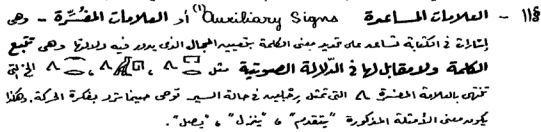 §11 - العلامات المساعدة Auxiliary Signs(1) أو العلامات المفسّرة - وهى
إشارات فى الكتابة تساعد على تحديد معنى الكلمة بتعيين المجال الذى يدور فيه دلالتها وهى تتبع
الكلمة ولا مقابل لها فى الدلالة الصوتية مثل
تنتهى بالعلامة المفسرة التى تمثل رجلين فى حالة السير توحى حينما ترد بفكرة الحركة. وهكذا
يكون معنى الأمثلة المذكورة "يتقدم" ، "ينزل" ، "يصل".